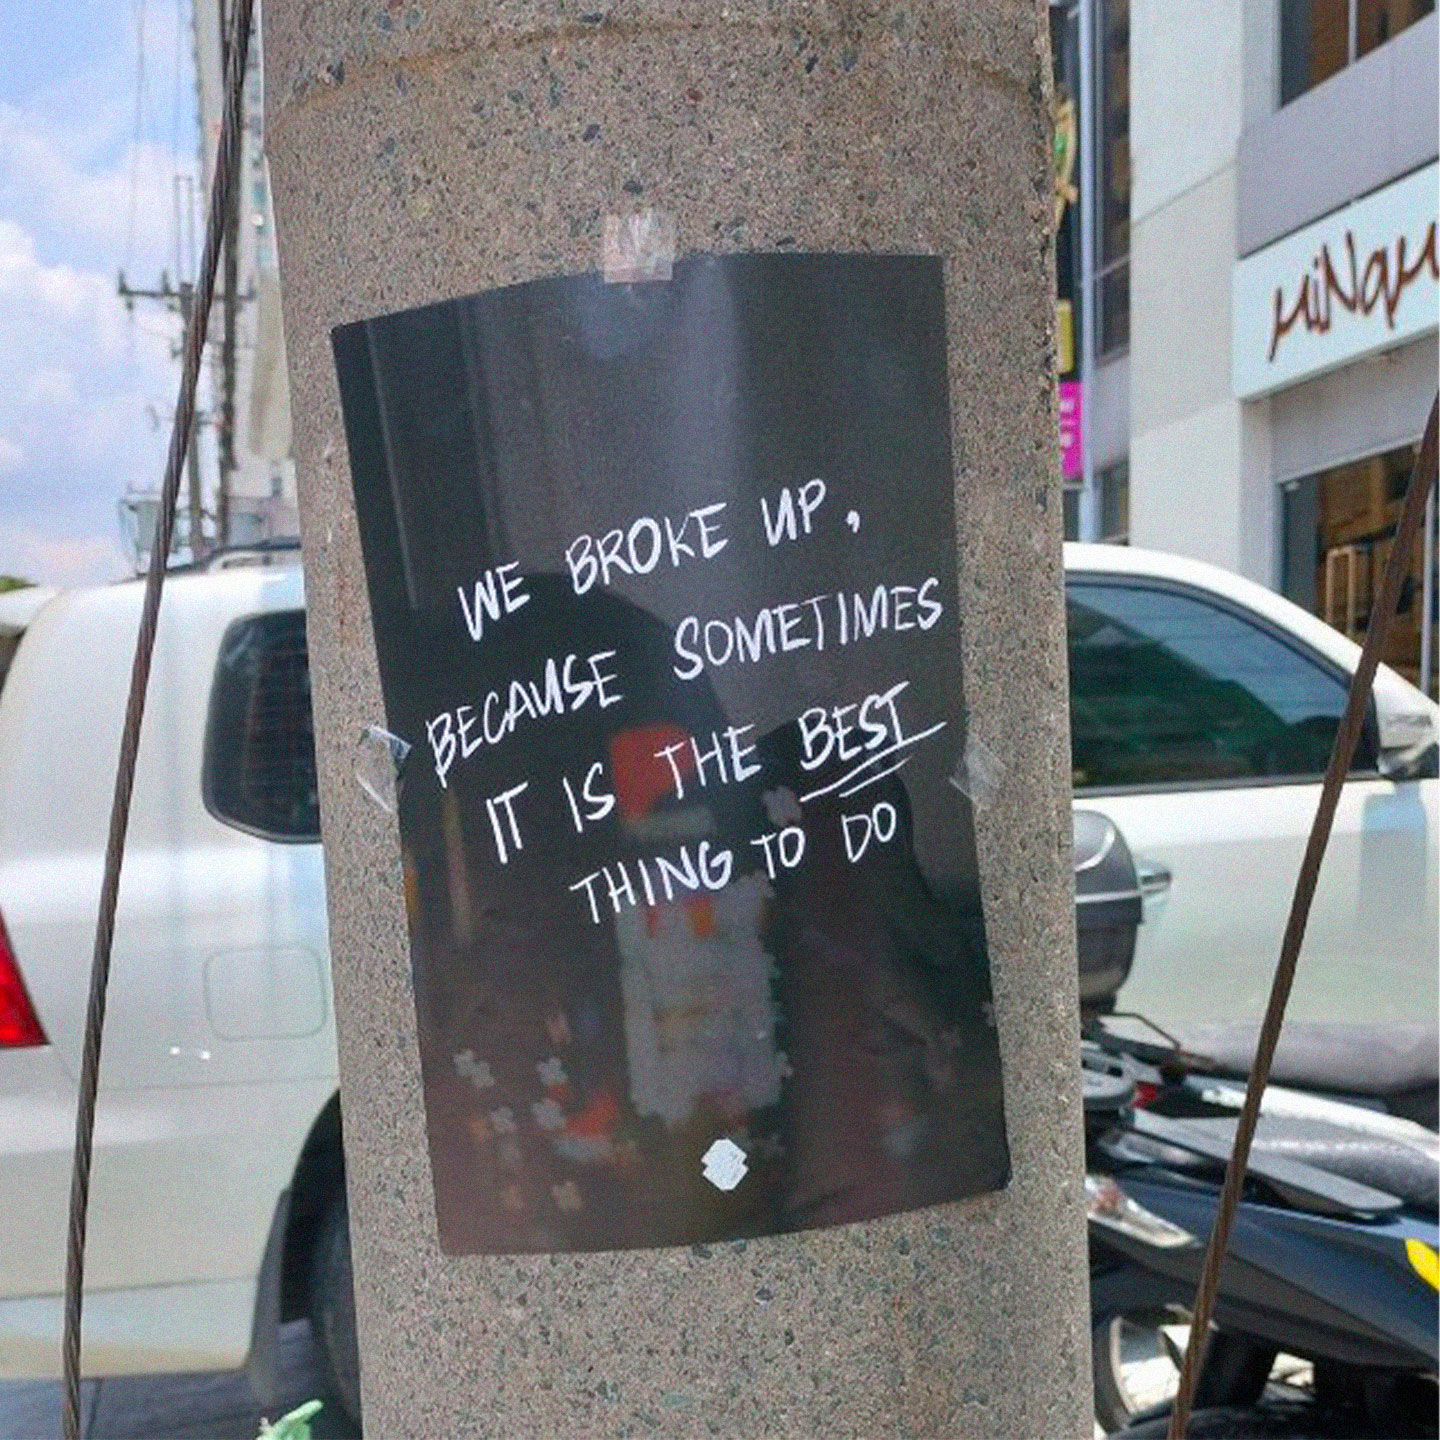 WE BROKE UP,
BECAUSE SOMETIMES
IT IS THE BEST
THING TO DO